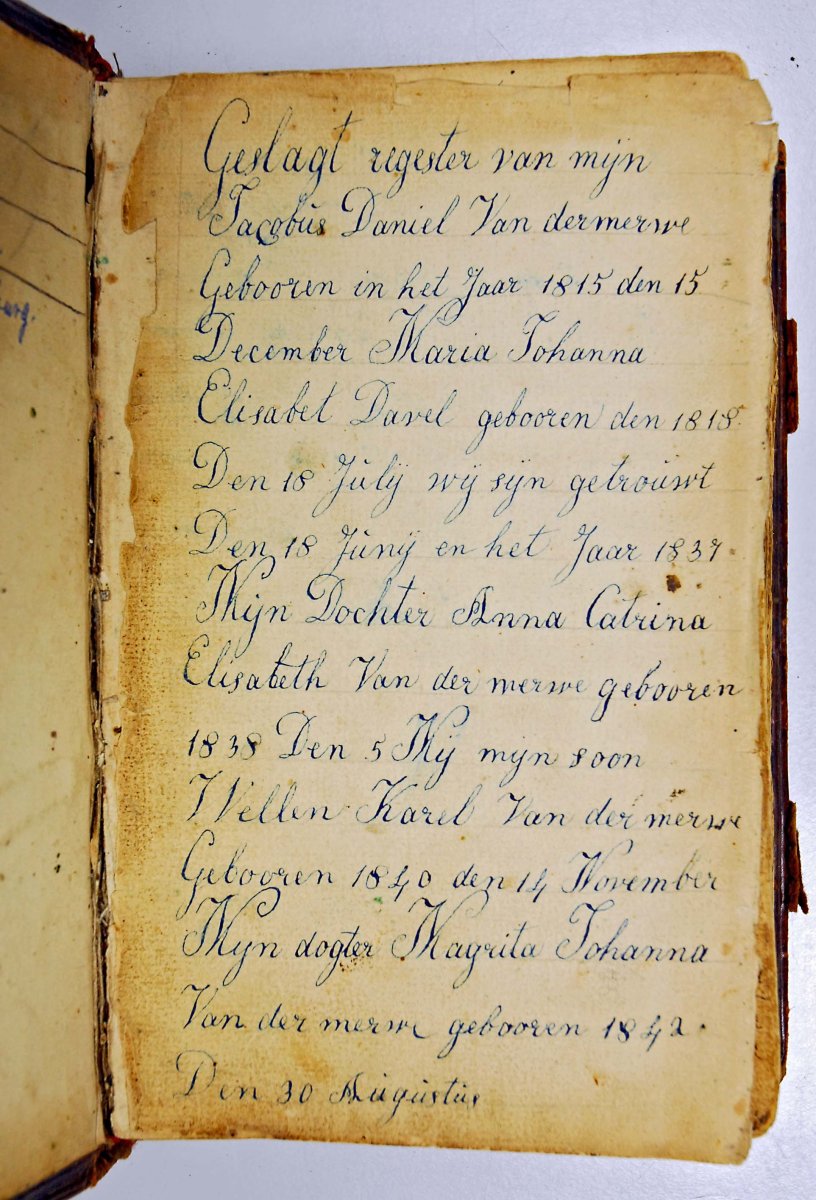 arg.
Geslagt regester van mijn
Jacobus Daniel Van dermerwe
Gebooren in het Jaar 1815 den 15
December Maria Johanna
Elisabet Davel gebooren den 1818
Den 18 Julij wij sijn getrouwt
Den 18 Junij en het Jaar 1837
Mijn Dochter Anna Catrina
Elisabeth Van der merwe gebooren
1838 Den 5 Mij mijn soon
Wellen Karel Van der merwe
Gebooren 1840 den 14 November
Mijn dogter Magrita Johanna
Van der merwe gebooren 1842
Den 30 Augustus